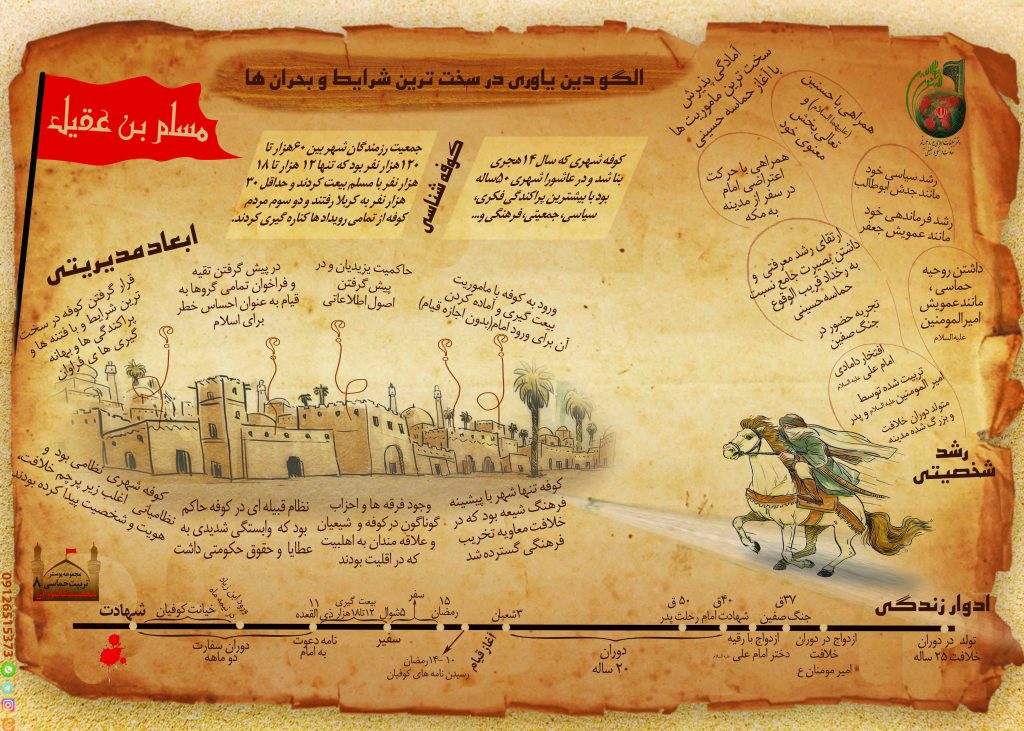 الگو دین یاوری در سخت ترین شرایط و بحران ها
مسلم بن عقیل
کوفه شناسی
کوفه شهری که سال ۱۴ هجری
بنا شد و در عاشورا شهری ۵۰ساله
بود با بیشترین پراکندگی فکری،
سیاسی، جمعیتی، فرهنگی و...
جمعیت رزمندگان شهر بین ۶۰هزار تا
۱۲۰هزار نفر بود که تنها ۱۲ هزار تا ۱۸
هزار نفر با مسلم بیعت کردند و حداقل ۳۰
هزار نفر به کربلا رفتند و دو سوم مردم
کوفه از تمامی رویدادها کناره گیری کردند.
آمادگی پذیرش
سخت ترین ماموریت ها
با آغاز حماسه حسینی
همراهی با حسنین
(علیهما السلام) و
تعالی بخش
معنوی خود
همراهی با حرکت
اعتراضی امام
در سفر از مدینه
به مکه
رشد سیاسی خود
مانند جدش ابوطالب
رشد فرماندهی خود
مانند عمویش جعفر
ارتقای رشد معرفتی و
داشتن بصیرت جامع نسبت
به رخداد قریب الوقوع
حماسه حسینی
داشتن روحیه
حماسی،
مانند عمویش
امیرالمومنین
علیه السلام
تجربه حضور در
جنگ صفین
افتخار دامادی
امام علی علیه السلام
تربیت شده توسط
امیر المومنین علیه السلام و پدر
متولد دوران خلافت
و بزرگ شده مدینه
رشد
شخصیتی
ابعاد مدیریتی
ورود به کوفه با ماموریت
بیعت گیری و آماده کردن
آن برای ورود امام(بدون اجازه قیام)
حاکمیت یزیدیان و در
پیش گرفتن
اصول اطلاعاتی
در پیش گرفتن تقیه
و فراخوان تمامی گروها به
قیام به عنوان احساس خطر
برای اسلام
قرار گرفتن کوفه در سخت
ترین شرایط و با فتنه ها و
پراکندگی ها و بهانه
گیری ها ی فراوان
کوفه تنها شهر با پیشینه
فرهنگ شیعه بود که در
خلافت معاویه تخریب
فرهنگی گسترده شد
وجود فرقه ها و احزاب
گوناگون در کوفه و شیعیان
و علاقه مندان به اهلبیت
که در اقلیت بودند
نظام قبیله ای در کوفه حاکم
بود که وابستگی شدیدی به
عطایا و حقوق حکومتی داشت
کوفه شهری نظامی بود و
نظامیانی اغلب زیر پرچم خلافت،
هویت و شخصیت پیدا کرده بودند
مجموعه پوستر
تربیت حماسی ۸
شخصیت های عاشورایی
09126515373
ادوار زندگی
تولد در دوران
خلافت ۲۵ ساله
ازدواج در دوران
خلافت
امیر مومنان ع
۳۷ق
جنگ صفین
ازدواج با رقیه
دختر امام علی علیه السلام
۴۰ق
شهادت امام
۵۰ ق
رحلت پدر
دوران
۲۰ ساله
۳شعبان
آغاز قیام
۱۵
رمضان
۱۰ -۱۴رمضان
رسیدن نامه های کوفیان
سفر
۵شوال
سفیر
بیعت گیری
۱۲تا۱۸هزار
۱۱
ذی القعده
نامه دعوت
به امام
خیانت کوفیان
دوران سفارت
دو ماهه
شهادت